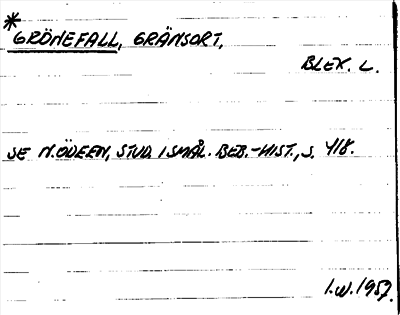 * GRÖNEFALL, GRÄNSORT,
BLEK. L.
SE N. ÖDEEN, STUD. I SMÅL. BEB.-HIST., S. 418.
I.W. 1957.